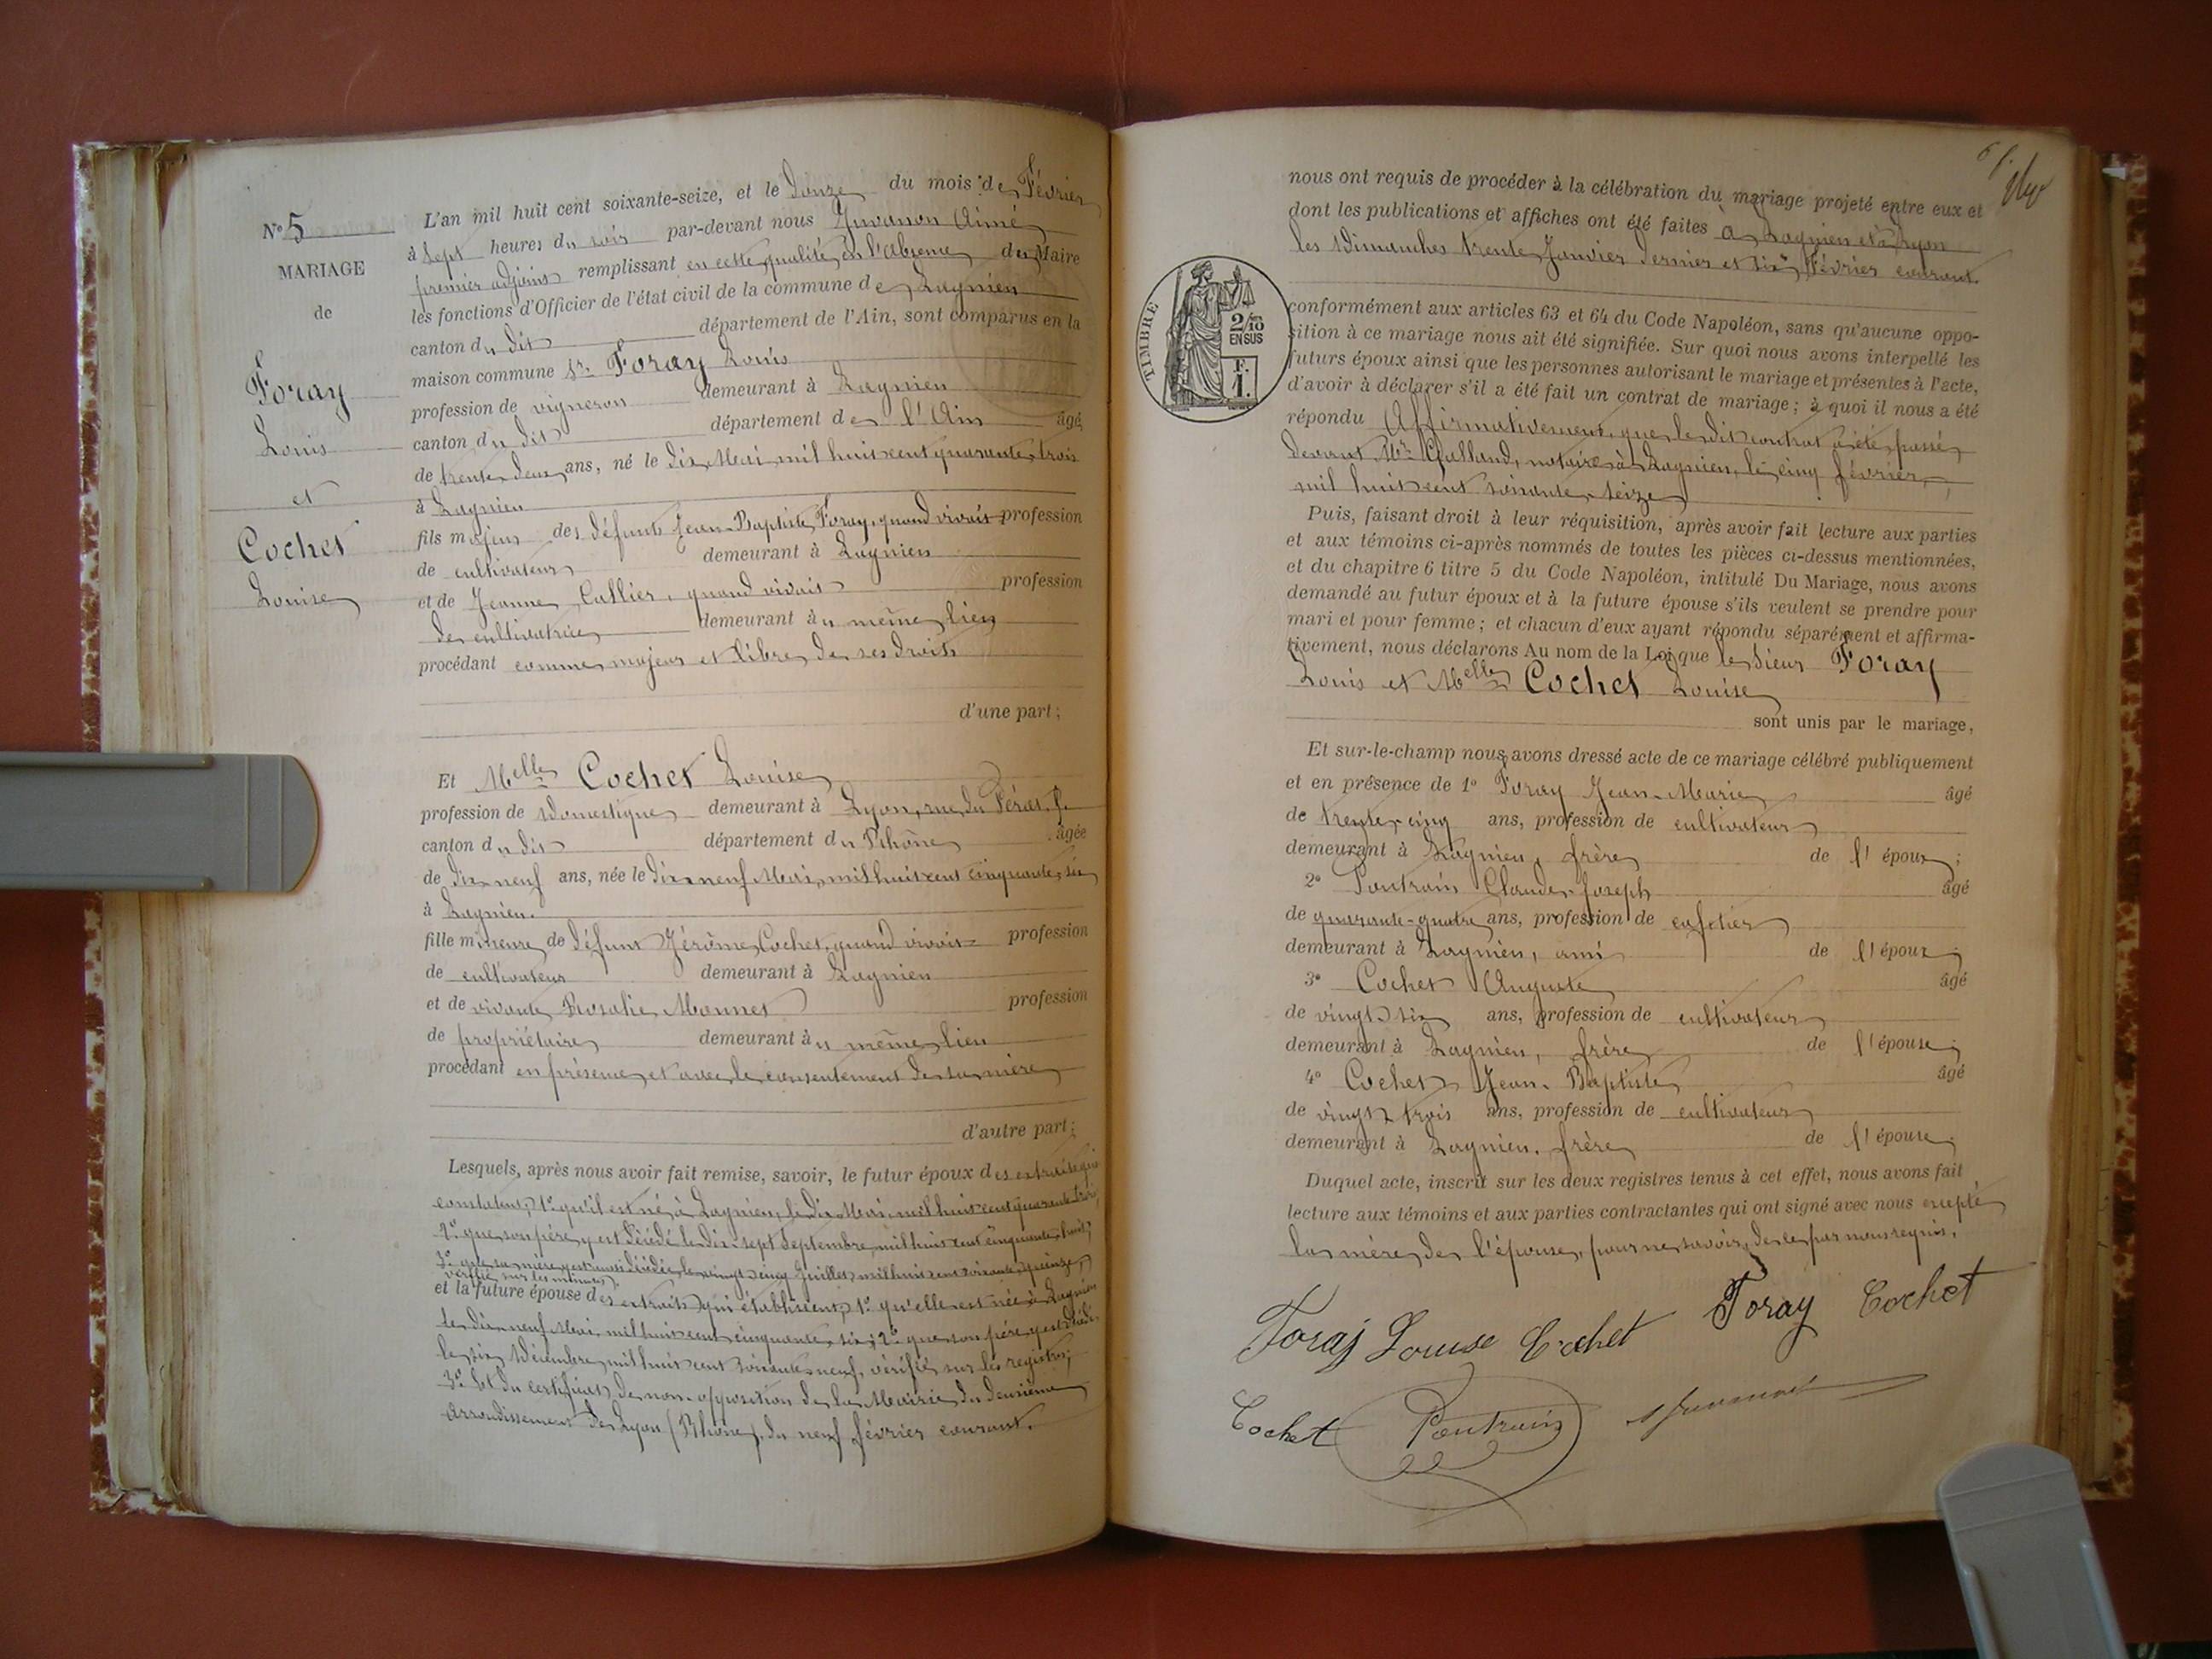 N° 5
MARIAGE
de
Foray
Louis
et
Cochet
Louise
L'an mil huit cent soixante-seize, et le douze du mois de Février
à sept heures du soir par-devant nous Juvanon Aimé
premier adjoint remplissant en cette qualité, en l'absence du Maire
les fonctions d'Officier de l'état civil de la commune de Lagnieu
canton du dit département de l'Ain, sont comparus en la
maison commune Sr. Foray Louis
profession de vigneron demeurant à Lagnieu
canton du dit département de l'Ain âgé
de trente deux ans, né le dix Mai mil huit cent quarante trois
à Lagnieu
fils majeur des défunts Jean-Baptiste Foray, quand vivait profession
de cultivateur demeurant à Lagnieu
et de Jeanne Callier, quand vivait profession
de cultivatrice demeurant au même lieu
procédant comme majeur et libre de ses droits
d'une part ;
Et Melle Cochet Louise
profession de domestique demeurant à Lyon, rue du Pérat,
canton du dit département du Rhône âgée
de dix neuf ans, née le dix neuf Mai mil huit cent cinquante six
à Lagnieu.
fille mineure de défunt Jérôme Cochet, quand vivait profession
de cultivateur demeurant à Lagnieu
et de vivante Rosalie Monnet profession
de propriétaire demeurant au même lieu
procédant en présence et avec le consentement de sa mère
d'autre part ;
Lesquels, après nous avoir fait remise, savoir, le futur époux des extraits qui
constatent, 1° qu'il est né à Lagnieu, le dix Mai mil huit cent quarante trois,
2° que son père y est décédé le dix-sept Septembre mil huit cent cinquante huit;
3° que sa mère y est aussi décédée le vingt cinq Juillet mil huit cent soixante quinze,
vérifié sur les minutes
et la future épouse des extraits qui établissent, 1° qu'elle est née à Lagnieu
le dix neuf Mai mil huit cent cinquante six; 2° que son père y est décédé
le six Décembre mil huit cent soixante neuf, vérifié sur les registres;
3° Et du certificat de non-opposition de la Mairie du deuxième
arrondissement de Lyon (Rhône), du neuf février courant.
nous ont requis de procéder à la célébration du mariage projeté entre eux et
dont les publications et affiches ont été faites à Lagnieu et à Lyon
les Dimanches trente Janvier dernier et six Février courant.
TIMBRE
2/10
EN SUS
F.
1.
conformément aux articles 63 et 64 du Code Napoléon, sans qu'aucune oppo-
sition à ce mariage nous ait été signifiée. Sur quoi nous avons interpellé les
futurs époux ainsi que les personnes autorisant le mariage et présentes à l'acte,
d'avoir à déclarer s'il a été fait un contrat de mariage ; à quoi il nous a été
répondu Affirmativement, que le dit contrat a été passé
devant Mr notaire à Lagnieu, le cinq février
mil huit cent soixante-seize
Puis, faisant droit à leur réquisition, après avoir fait lecture aux parties
et aux témoins ci-après nommés de toutes les pièces ci-dessus mentionnées,
et du chapitre 6 titre 5 du Code Napoléon, intitulé Du Mariage, nous avons
demandé au futur époux et à la future épouse s'ils veulent se prendre pour
mari et pour femme ; et chacun d'eux ayant répondu séparément et affirma-
tivement, nous déclarons Au nom de la Loi que le Sieur Foray
Louis et Melle Cochet Louise
sont unis par le mariage,
Et sur-le-champ nous avons dressé acte de ce mariage célébré publiquement
et en présence de 1° Foray Jean-Marie âgé
de trente-cinq ans, profession de cultivateur
demeurant à Lagnieu, frère de l'époux ;
2° Pontrain Claude-Joseph âgé
de quarante-quatre ans, profession de cafetier
demeurant à Lagnieu, ami de l'époux ;
3° Cochet Auguste âgé
de vingt six ans, profession de cultivateur
demeurant à Lagnieu, frère de l'épouse ;
4° Cochet Jean-Baptiste âgé
de vingt trois ans, profession de cultivateur
demeurant à Lagnieu, frère de l'épouse ;
Duquel acte, inscrit sur les deux registres tenus à cet effet, nous avons fait
lecture aux témoins et aux parties contractantes qui ont signé avec nous excepté
la mère de l'épouse, pour ne savoir, de ce par nous requis.
Foray Louise Cochet Foray Cochet
Cochet Pontrain